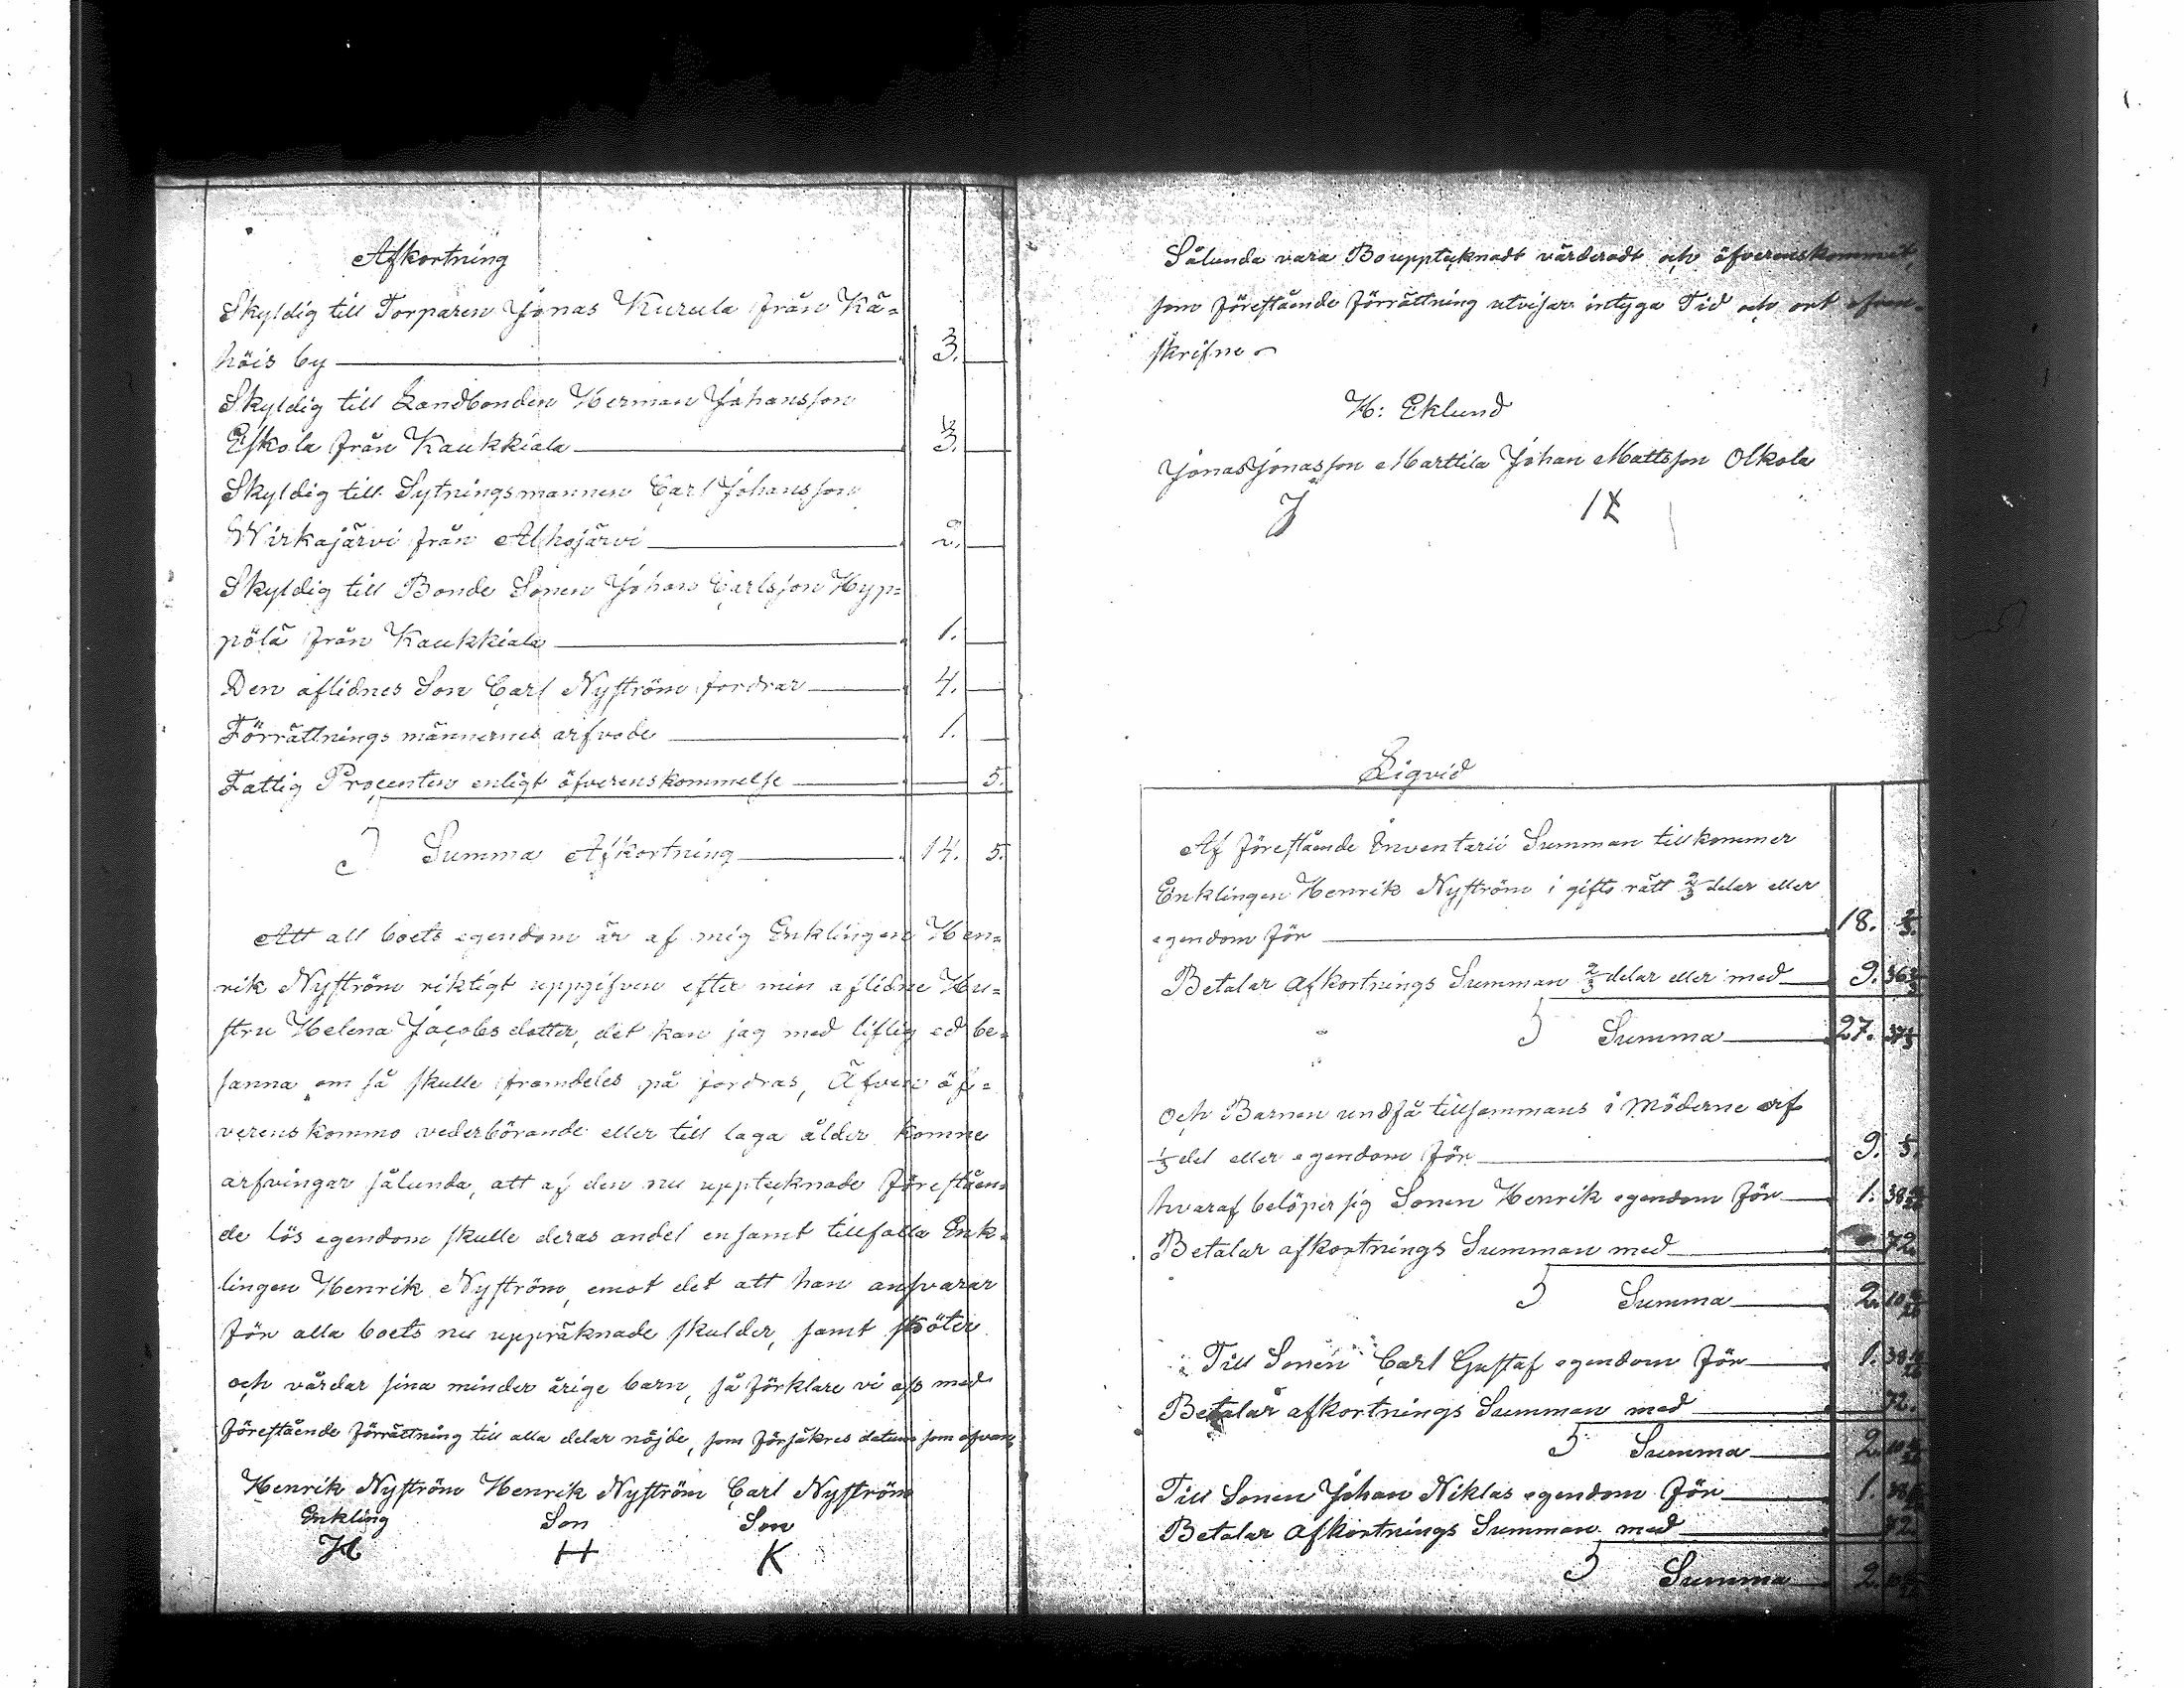 Afkortning
Skyldig till Torparen Jonas Kurula från Kä=
höis by 3.
Skyldig till Landbonden Herman Johansson
Eskola från Kaukkiala 3.
Skyldig till Sytningsmannen Carl Johansson
Wirkajärvi från Alhojärvi 2.
Skyldig till Bonde Sonen Johan Carlsson Hyp=
pölä från Kaukkiala 1.
Den aflidnes Son Carl Nyström fordrar 4.
Förrättnings männernes arfvode 1.
Fattig Procenten enligt öfverenskommelse 5.
Summa Afkortning 14. 5.
Att all boets egendom är af mig Enklingen Hen=
rik Nyström riktigt uppgifven efter min aflidne Hu=
stru Helena Jacobsdotter, det kan jag med liflig ed be=
sanna om så skulle framdeles på fordras, Äfven öf=
verenskommo vederbörande eller till laga ålder komne
arfvingar sålunda, att af den nu upptecknade föreståen=
de lös egendom skulle deras andel ensamt tillfalla Enk=
lingen Henrik Nyström, emot det att han ansvarar
för alla boets nu uppräknade skulder, samt sköter
och vårdar sina minder årige barn, så förklare vi oss med
förestående förrättning till alla delar nöjde, som försäkres datum som ofvan
Henrik Nyström Henrik Nyström Carl Nyström
Enkling Son Son
H H K
Sålunda vara Boupptecknadt värderadt och öfverenskommit,
som förestående förrättning utvisar intyga Tid och ort ofvan=
skrifne
H: Eklund
Jonas Jonasson Marttila Johan Mattsson Olkola
J
Liqvid
Af förestående Inventarii Summan tillkommer
Enklingen Henrik Nyström i gifto rätt 2/3 delar eller
egendom för 18. 2/3.
Betalar Afkortnings Summan 2/3 delar eller med 9. 36 2/3
Summa 27. 37 1/3
och Barnen undfå tillsammans i Möderne arf
1/3 del eller egendom för 9. 1/3.
hvaraf belöper sig Sonen Henrik egendom för 1. 38
Betalar afkortnings Summan med 72.
Summa 2. 10
Till Sonen Carl Gustaf egendom för 1. 38
Betalar afkortnings Summan med 72.
Summa 2. 10
Till Sonen Johan Niklas egendom för 1. 38
Betalar Afkortnings Summan med 72.
Summa 2.